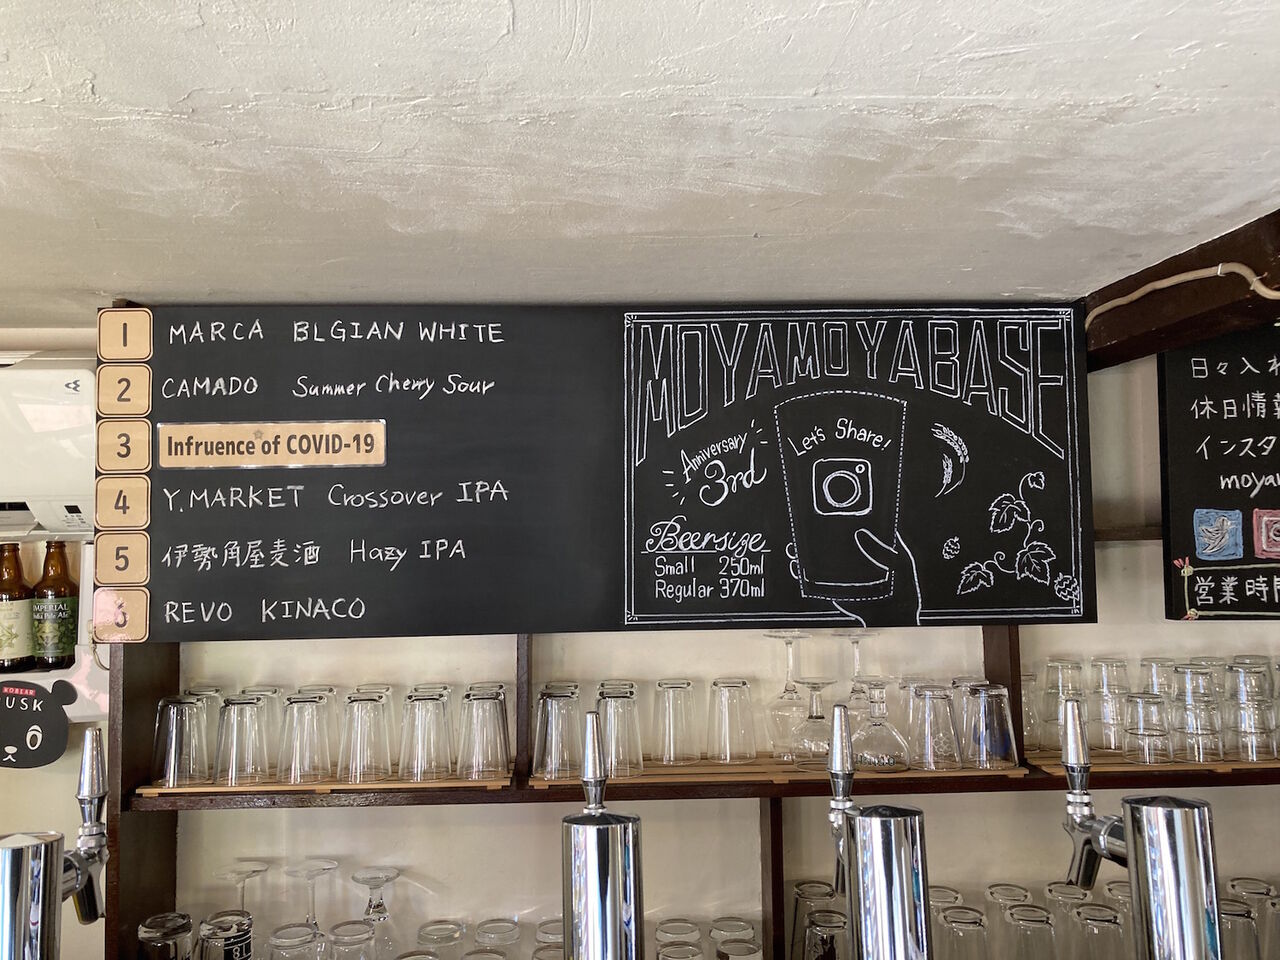 1 MARCA BLGIAN WHITE
2 CAMADO Summer Cherry Sour
3 Infruence of COVID-19
4 Y.MARKET Crossover IPA
5 伊勢角屋麦酒 Hazy IPA
6 REVO KINACO
MOYAMOYABASE
Anniversary
3rd
Let's Share!
Beersize
Small 250ml
Regular 370ml
日々入れ
休日情報
インスタ
moya
営業時間
IMPERIAL
India Pale Ale
USK